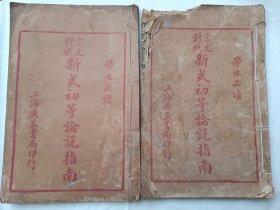 學生必讀
言文對照
新式初等論說指南
上海廣益書局印行
學生必讀
言文對照
新式初等論說指南
上海廣益書局印行